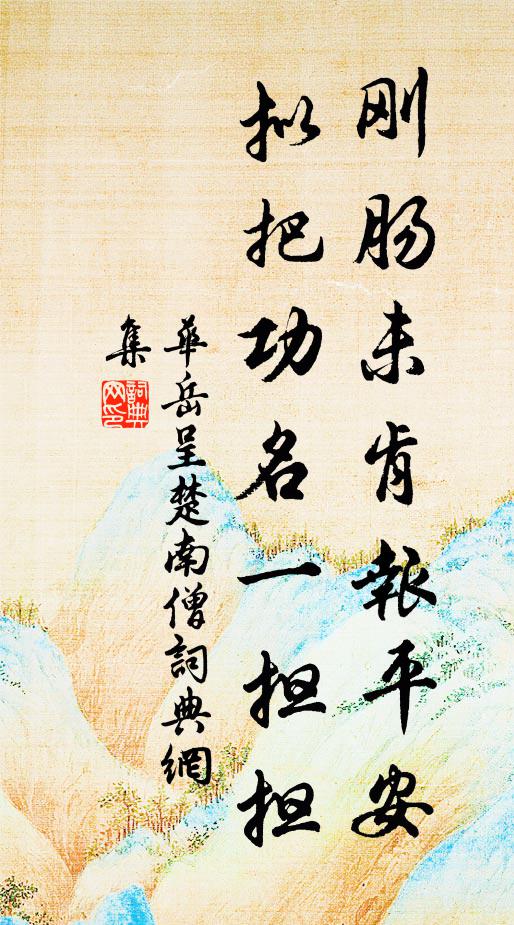 刚肠未肯報平安
拟把功名一担担
華岳呈楚南僧詞典網
集
詞典网印